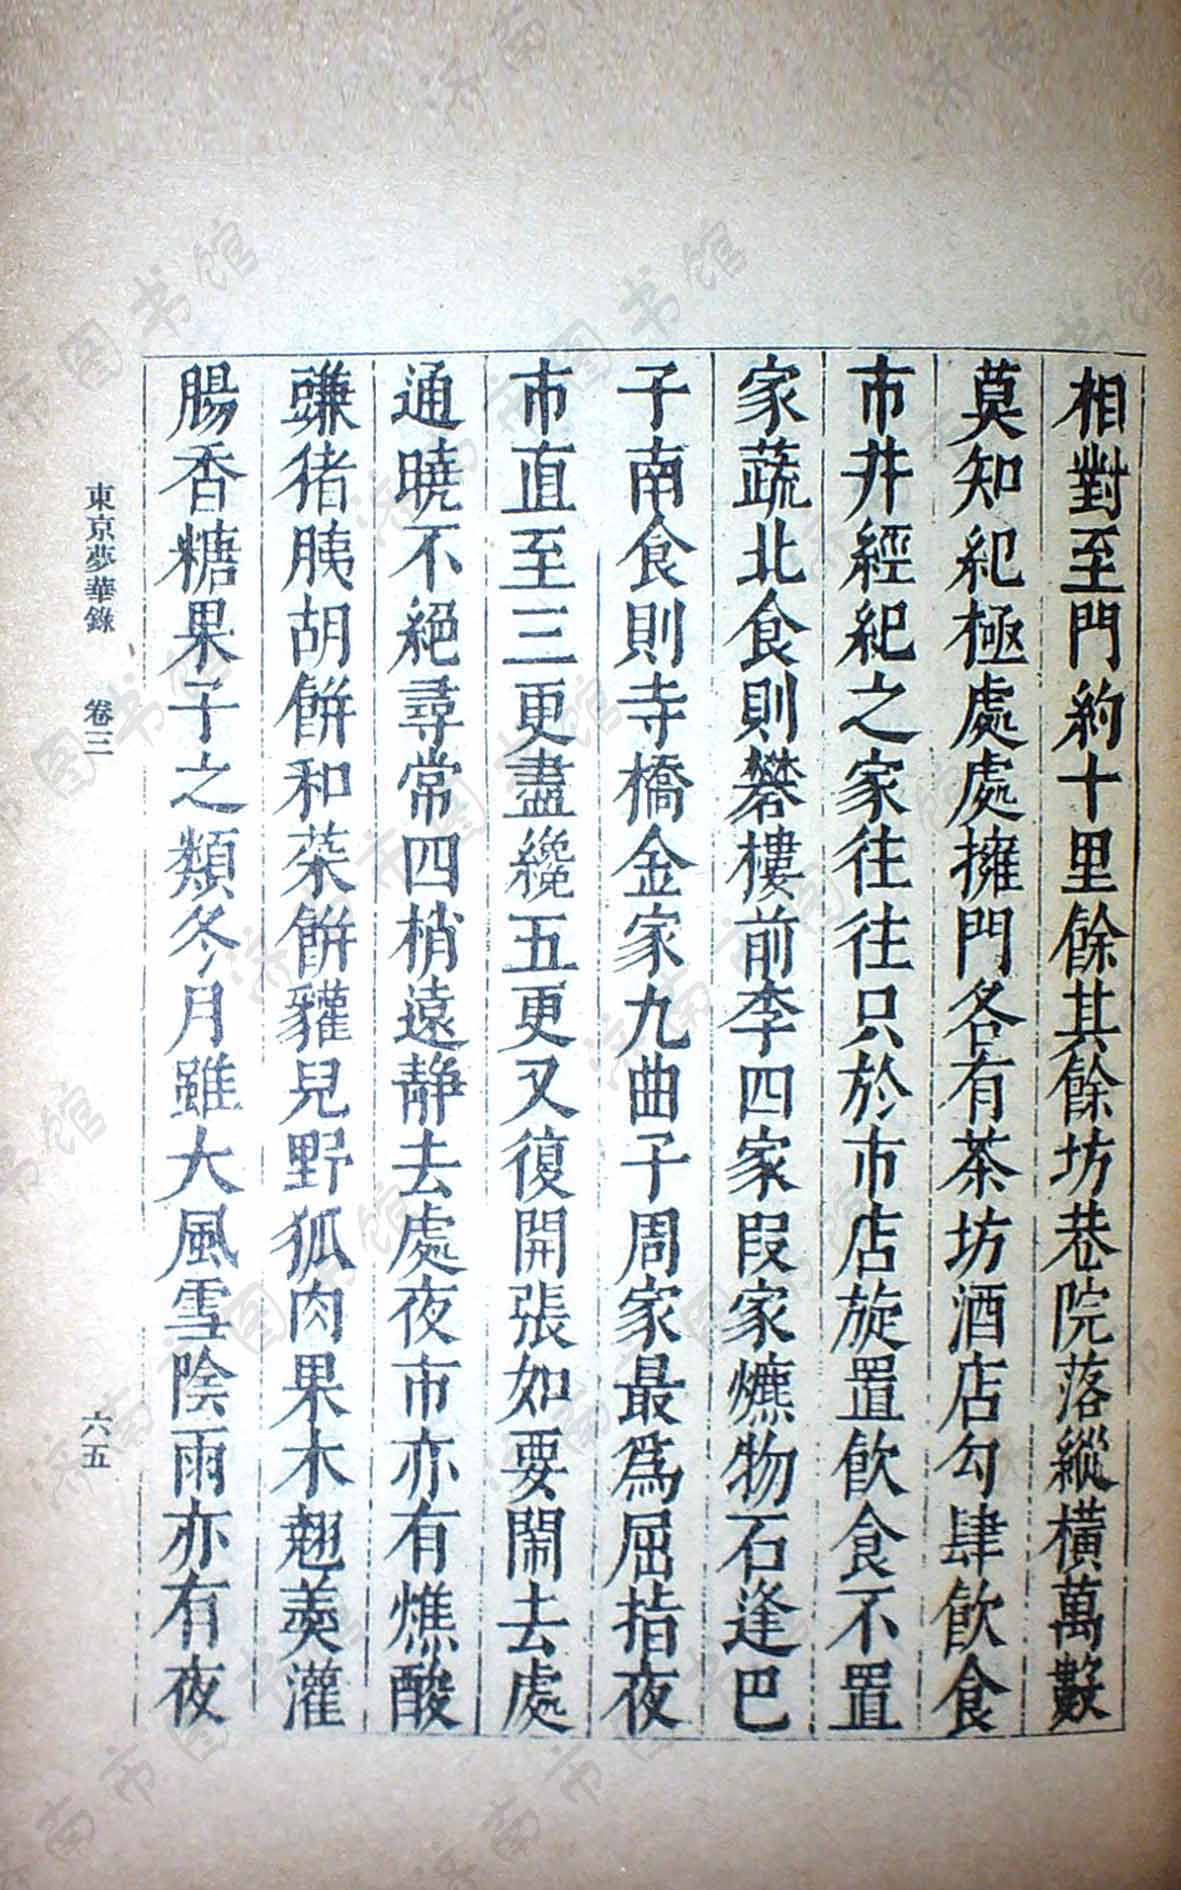 相對至門約十里餘其餘坊巷院落縱橫萬數
莫知紀極處處擁門各有茶坊酒店勾肆飲食
市井經紀之家往往只於市店旋置飲食不置
家蔬北食則礬樓前李四家段家爊物石逢巴
子南食則寺橋金家九曲子周家最為屈指夜
市直至三更盡纔五更又復開張如要鬧去處
通曉不絕尋常四梢遠靜去處夜市亦有燋酸
豏猪胰胡餅和菜餅獾兒野狐肉果木翹羹灌
腸香糖果子之類冬月雖大風雪陰雨亦有夜
東京夢華錄 卷三 六五
济南市图书馆